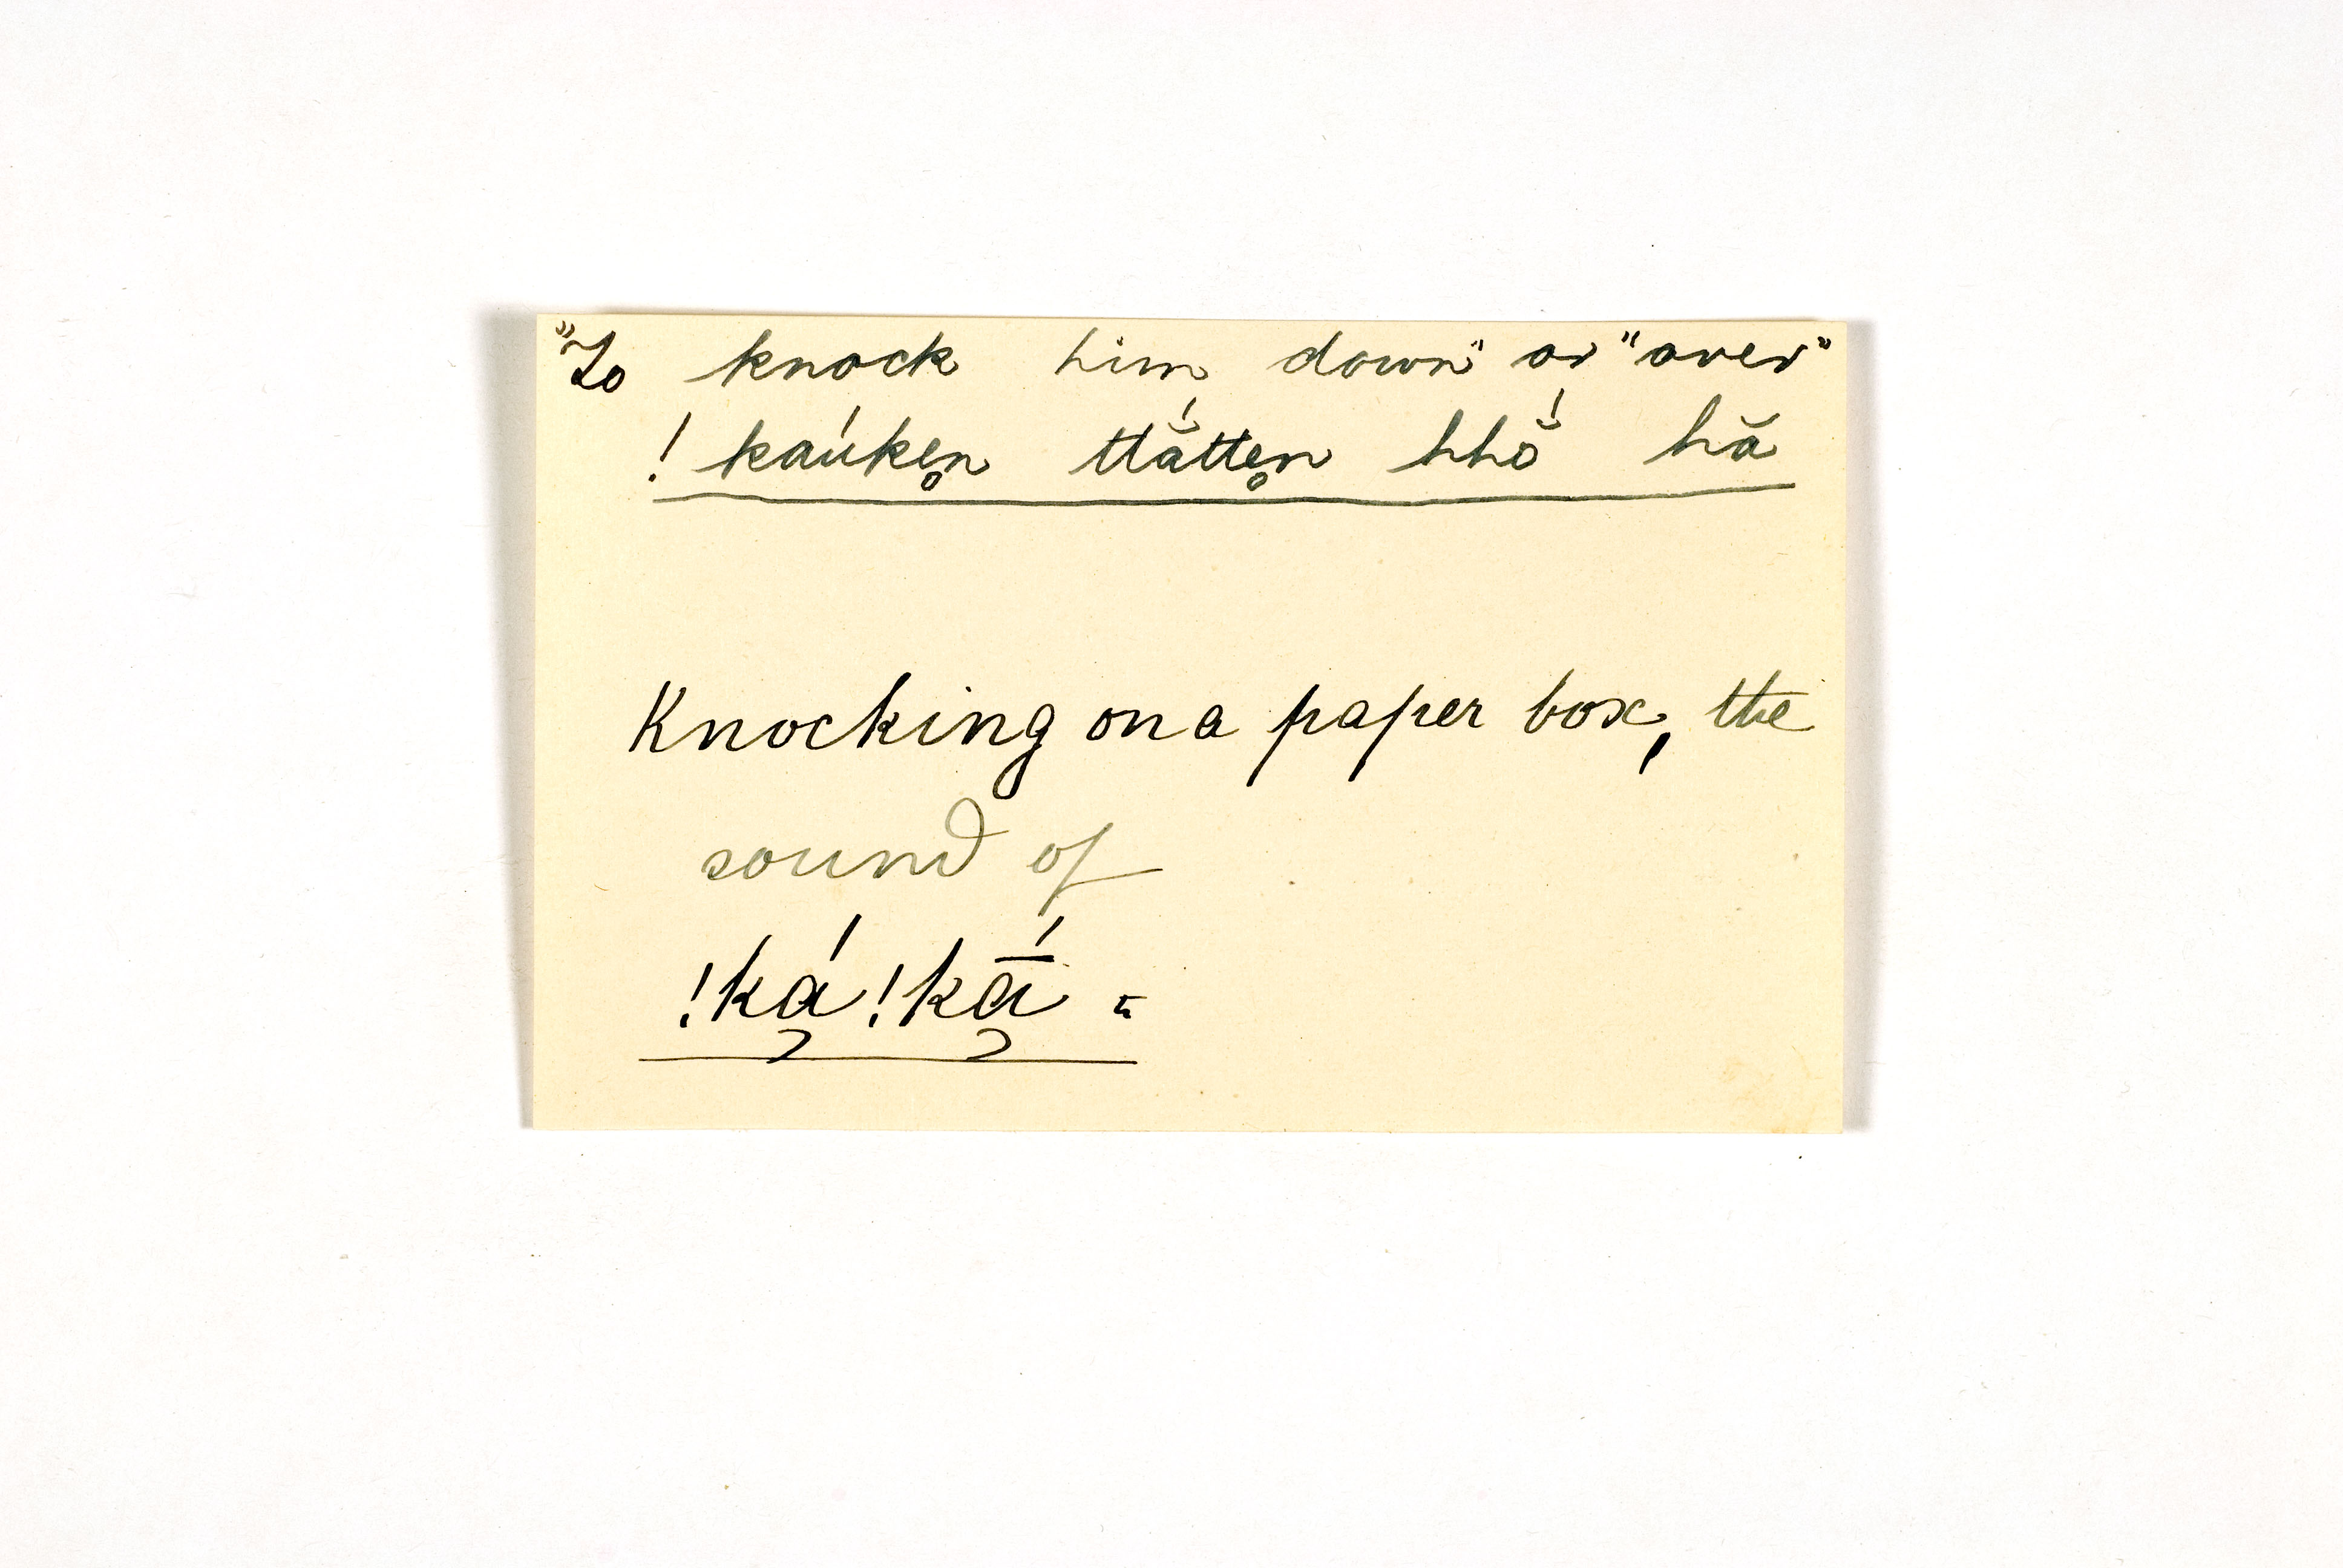 "To knock him down" or "over"
!kaúken̥ ttắtten̥ hhṍ hă
Knocking on a paper box, the
sound of
!ká̹!kā̹́ =